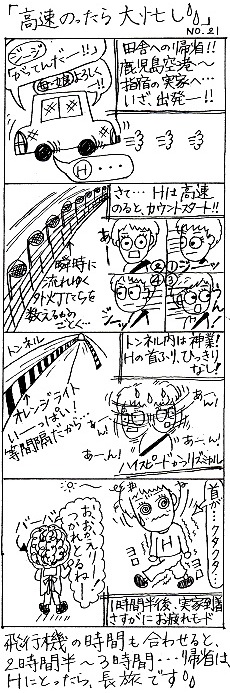 「高速のったら 大忙し」
NO.21
田舎への帰省!!
鹿児島空港〜
指宿の実家へ…
いざ、出発ー!!
H・・・
さて… Hは高速
のると、カウントスタート!!
瞬時に
流れゆく
外灯たちを
数えるかの
ごとく…
①
②
③
④
トンネル内は神業!
Hの首ふり、ひっきり
なし!
トンネル
オレンジライト
いーっぱい!
等間隔にか〜…
あーん!
あん!
あーん!
あーん!
ハイスピードかつリズミカル
首が…クタクタ…
H
おかえりー
つかれとるねー
1時間半後、実家到着
さすがにお疲れモード
飛行機の時間も合わせると、
2時間半〜3時間…帰省は、
Hにとったら、長旅です